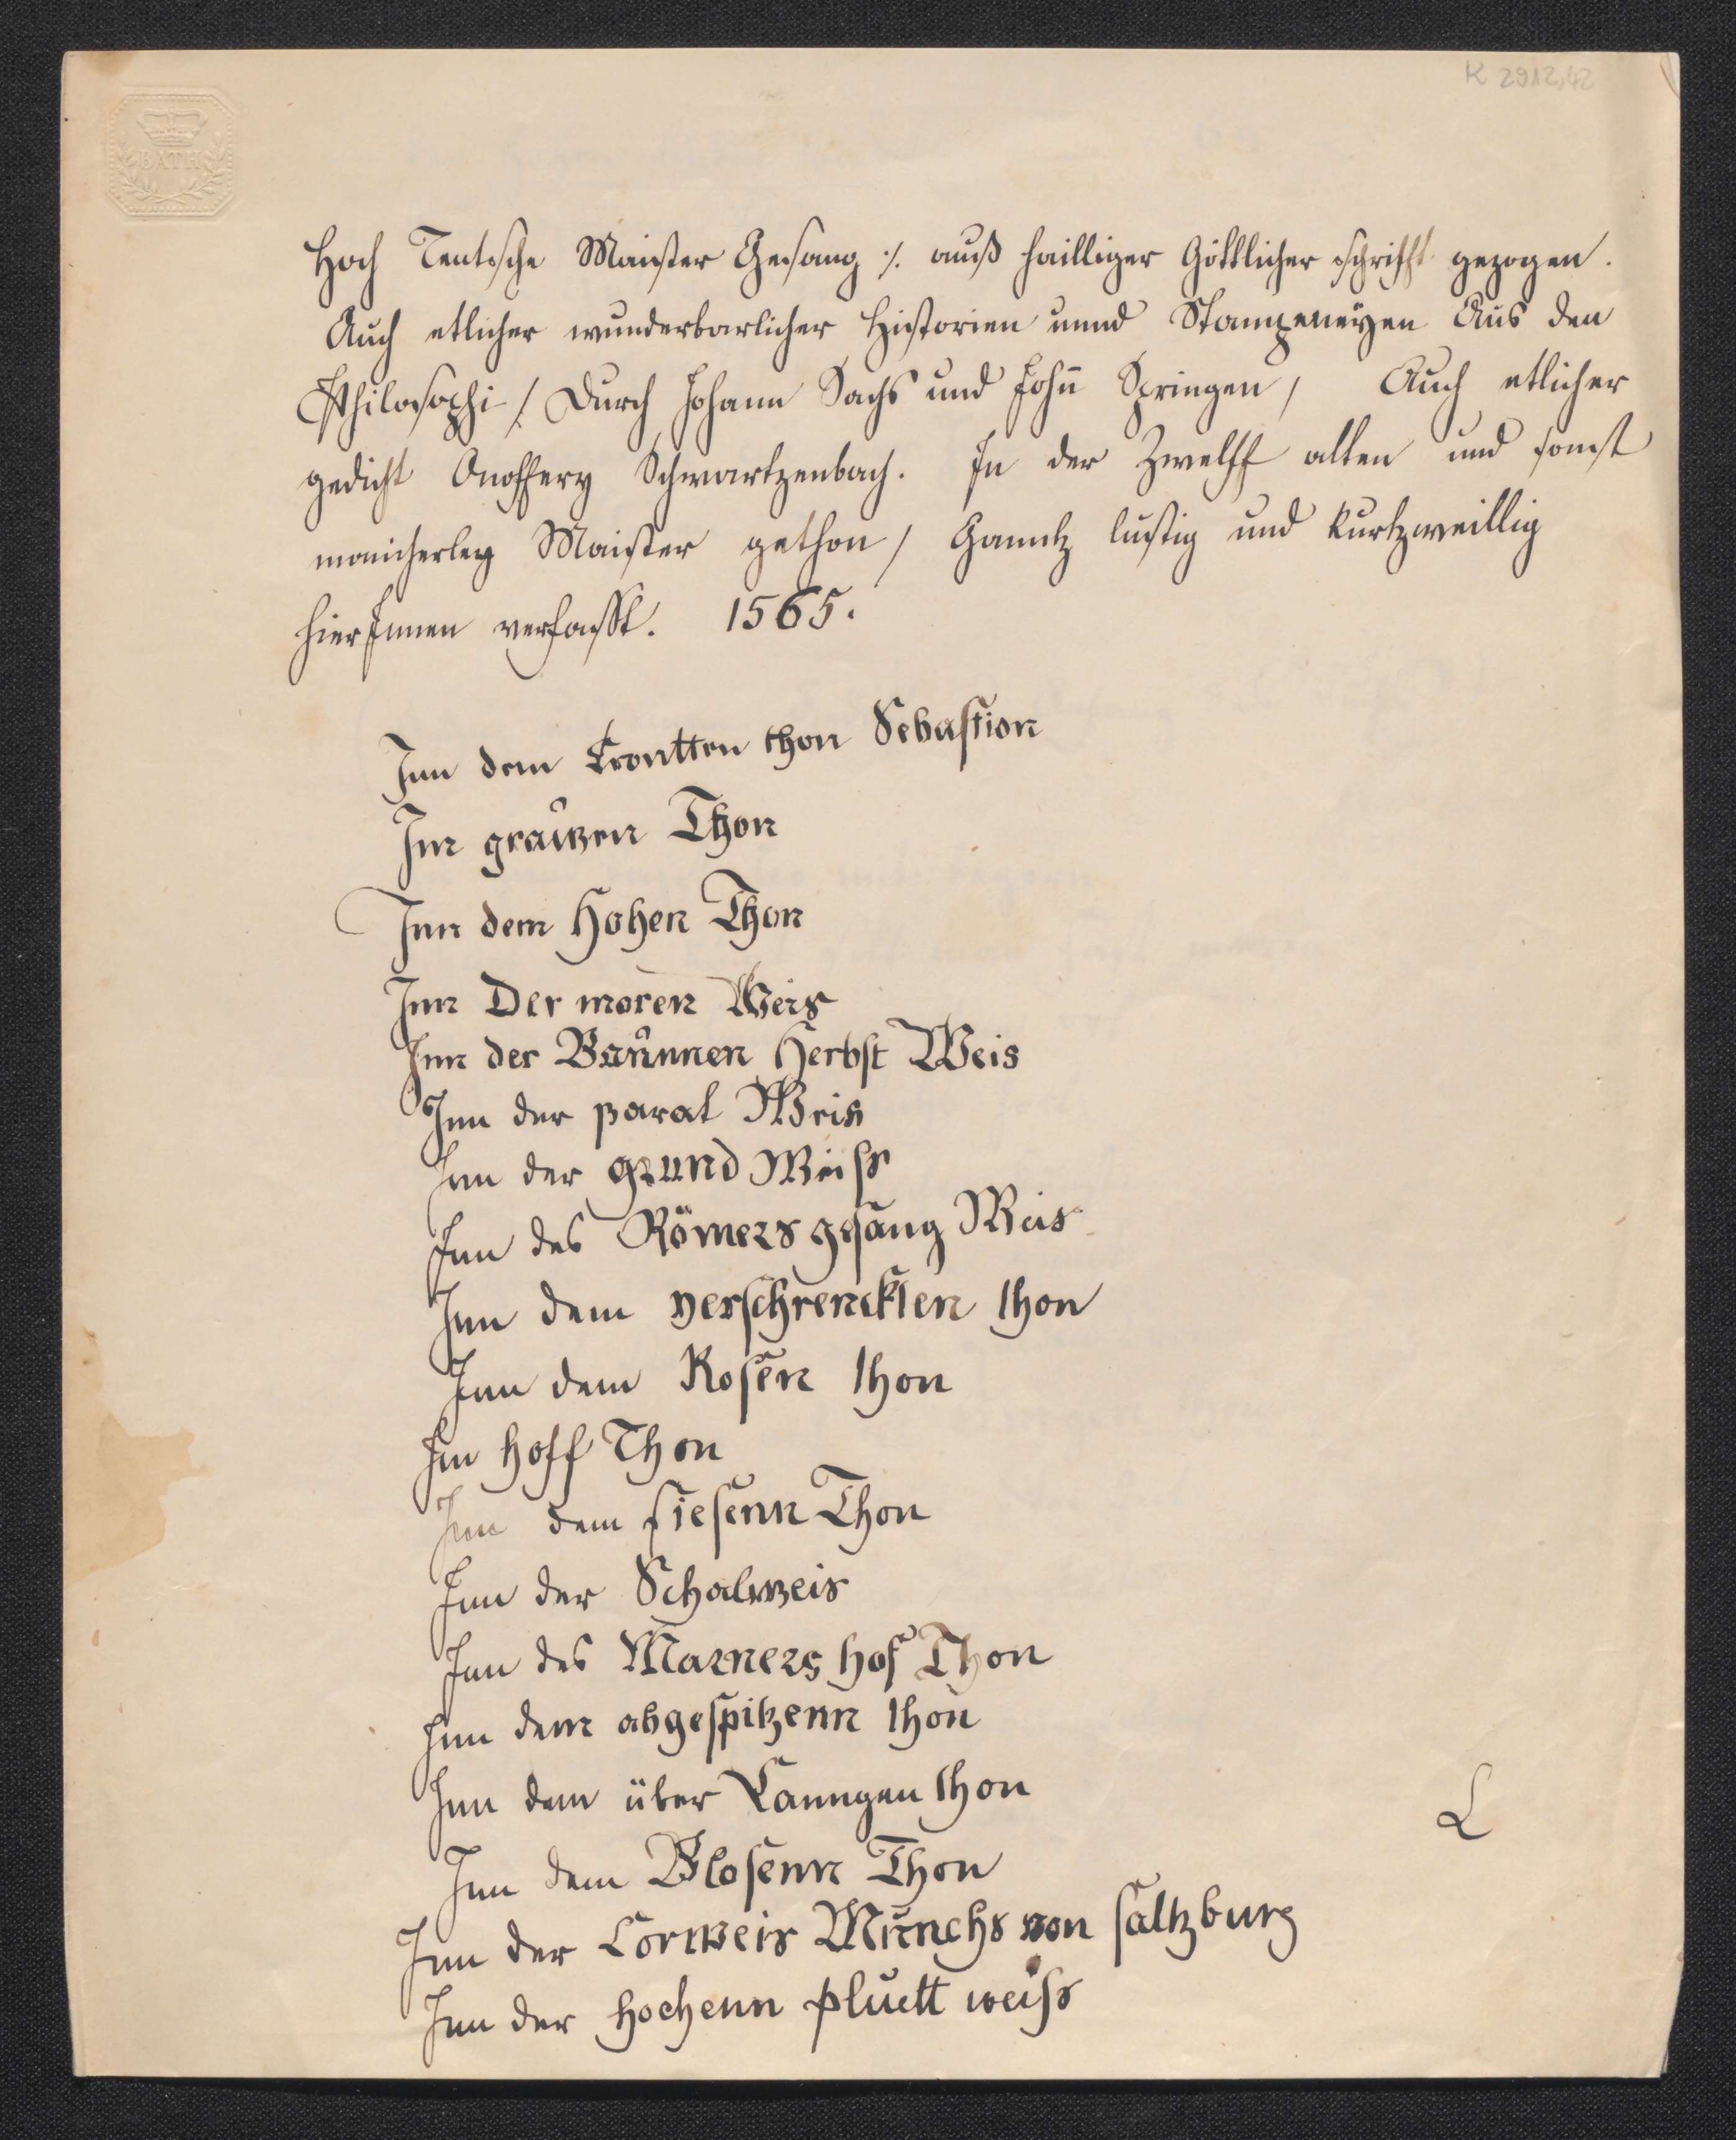 K 2912,42
BATH
Hoch Teutsche Maister Gesang ./. auß hailliger Göttlicher schrifft gezogen.
Auch etlicher wunderbarlicher Historien unnd Stampeneyen Aus den
Philosophi / Durch Johann Sachs und Johñ Springen / Auch etlicher
gedicht Onoffery Schwartzenbach. In der Zwelff alten und sonst
manicherley Maister gethon / Ganntz lustig und kurtzweillig
hierInnen verfasst. 1565.
Inn dem Krontten thon Sebastion
Im graůwen Thon
Inn dem Hohen Thon
Inn Der moren Weis
Inn der Baůmnen Herbst Weis
Inn der parat Weis
Inn der grund Weiss
Inn des Römers gesang Weis
Inn dem verschrenckten thon
Inn dem Rosen thon
Im Hoff Thon
Inn dem siesenn Thon
Inn der Schalweis
Inn des Marners hof Thon
Inn dem abgespitzenn thon
Inn dem über Lanngen thon
L
Inn dem Blosenn Thon
Inn der Corweis Münchs von saltzburg
Inn der Hochenn pluett weiss